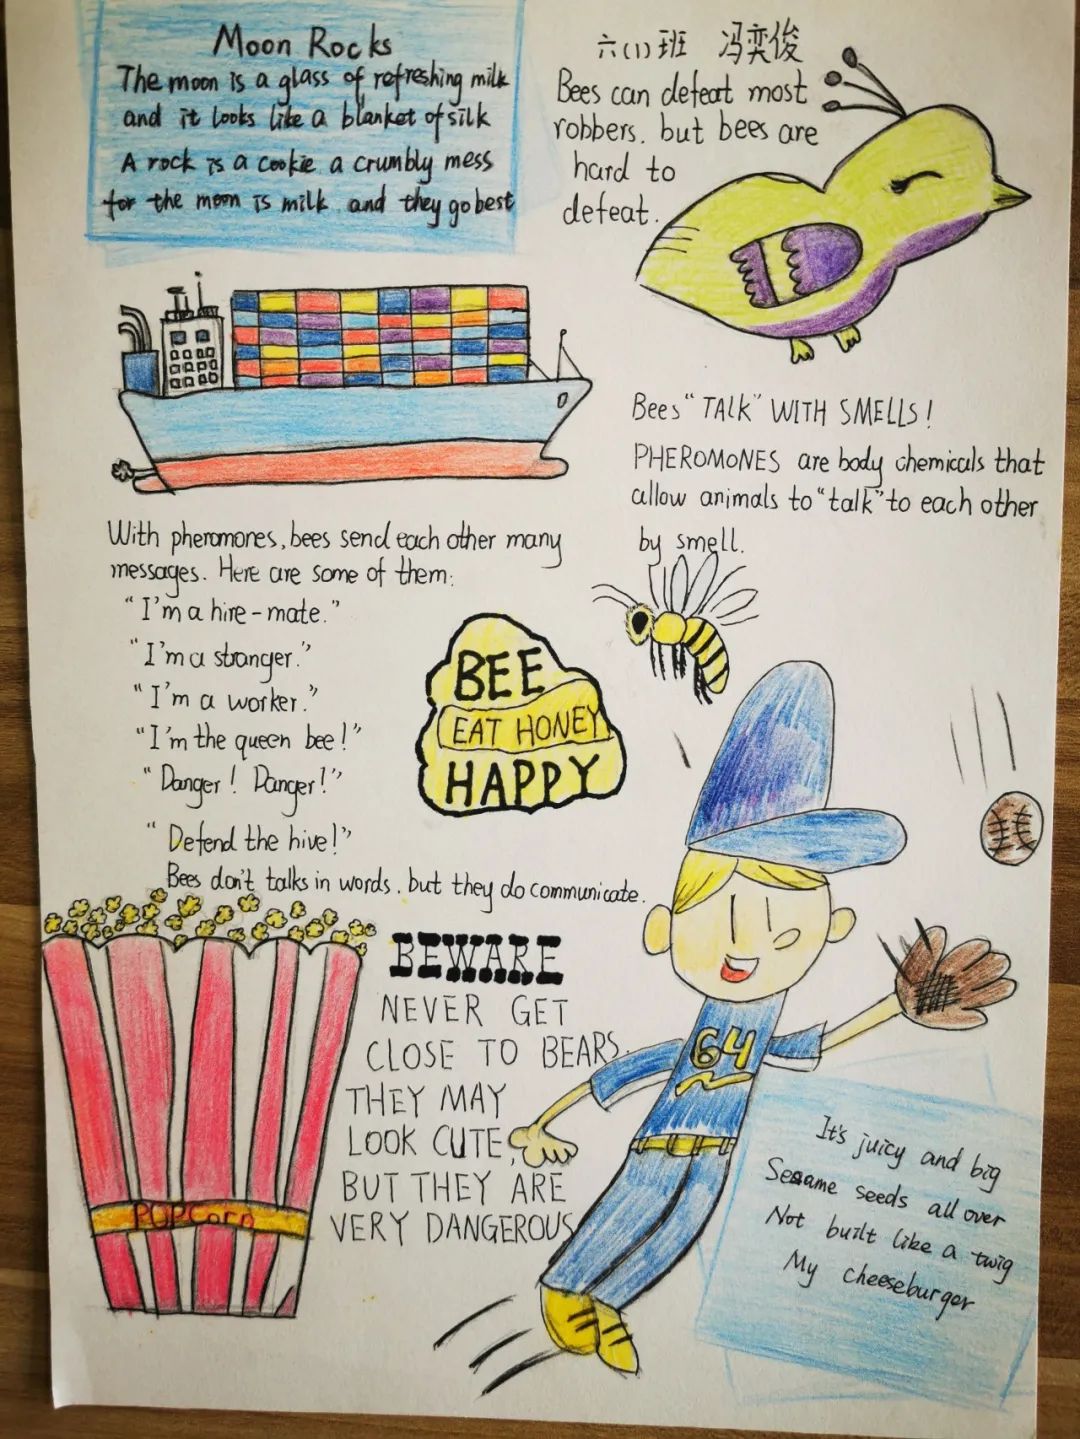 Moon Rocks
The moon is a glass of refreshing milk
and it looks like a blanket of silk
A rock is a cookie a crumbly mess
for the moon is milk and they go best
六(1)班 冯奕俊
Bees can defeat most
robbers. but bees are
hard to
defeat.
Bees "TALK" WITH SMELLS!
PHEROMONES are body chemicals that
allow animals to "talk" to each other
by smell.
With pheromones, bees send each other many
messages. Here are some of them:
"I'm a hire-mate."
"I'm a stranger."
"I'm a worker."
"I'm the queen bee!"
"Danger! Danger!"
"Defend the hive!"
Bees don't talks in words. but they do communicate.
BEE
EAT HONEY
HAPPY
BEWARE
NEVER GET
CLOSE TO BEARS.
THEY MAY
LOOK CUTE,
BUT THEY ARE
VERY DANGEROUS
POPCorn
64
It's juicy and big
Sesame seeds all over
Not built like a twig
My cheeseburger